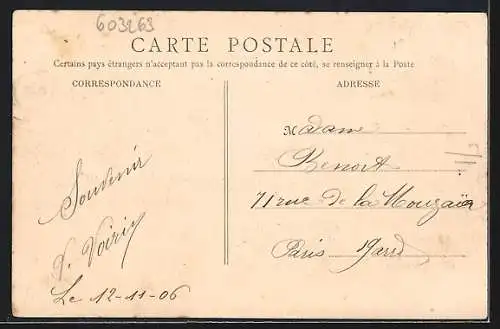 603263
CARTE POSTALE
Certains pays étrangers n'acceptant pas la correspondance de ce côté, se renseigner à la Poste
CORRESPONDANCE
Souvenir
V. Voiriy
Le 12-11-06
ADRESSE
Madame
Benoit
71 rue de la Mouzaïa
Paris 19arrd